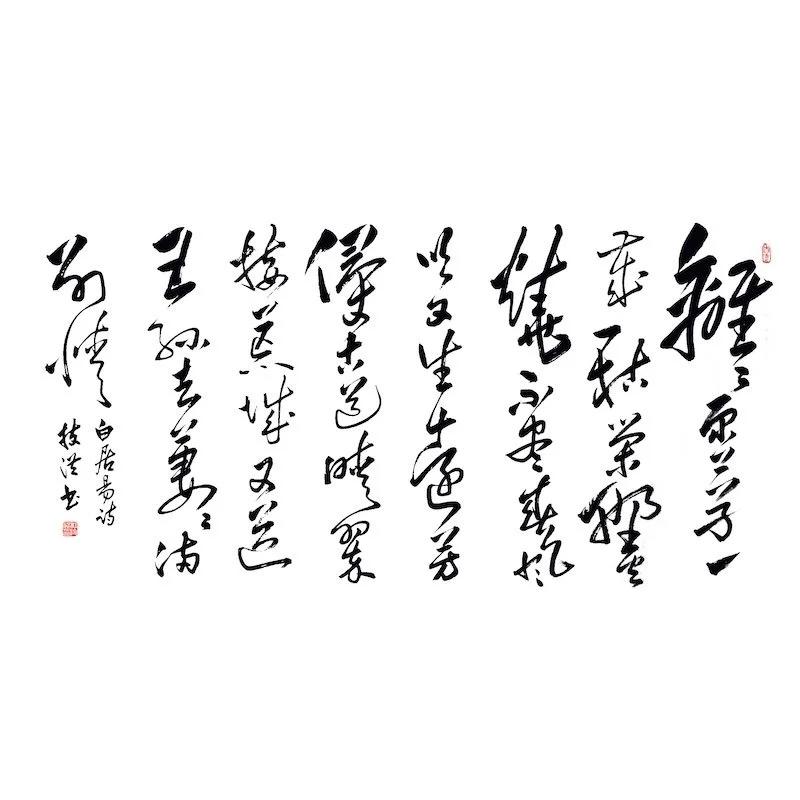 離〻原上草一
歲一枯榮野火
燒不盡春風
吹又生遠芳
侵古道晴翠
接荒城又送
王孫去萋〻滿
別情
白居易诗
洪书